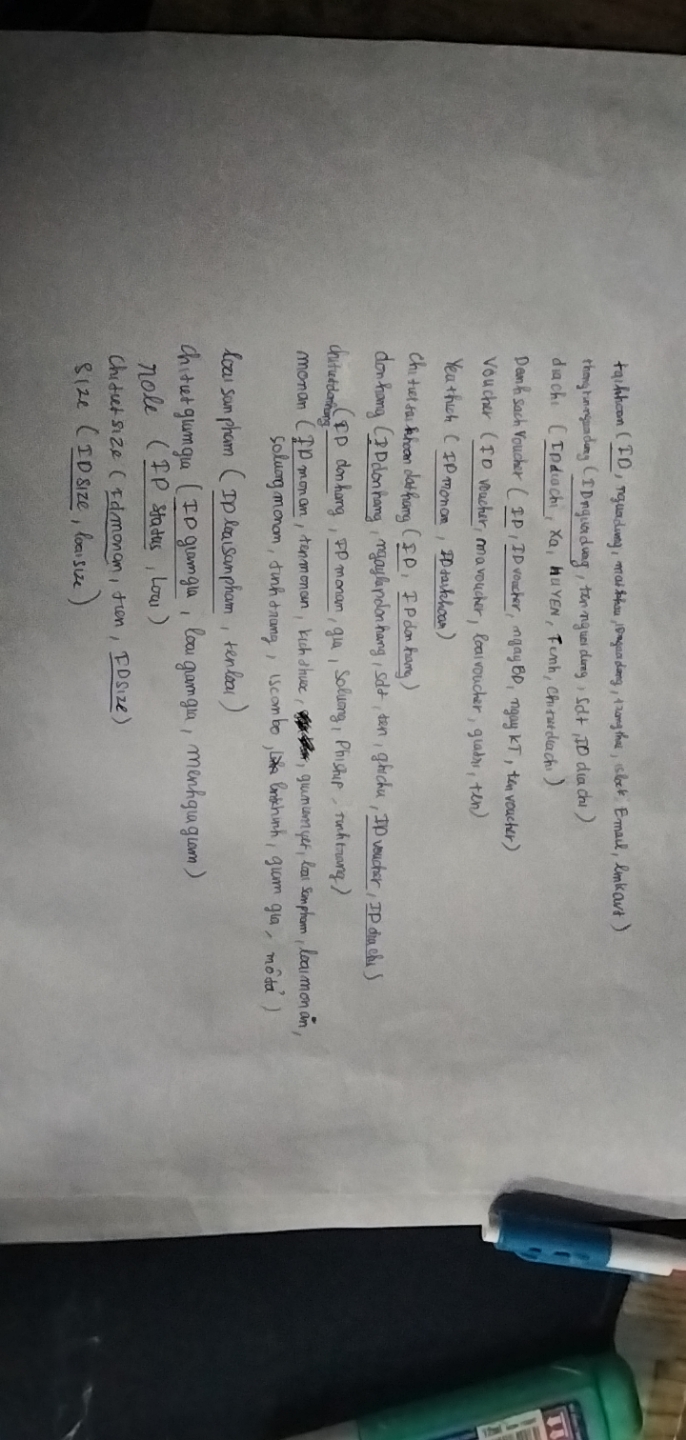 taikhoan (ID, nguoidung, matkhau, IDnguoidung, trangthai, islock, Email, linkavt)
thongtinnguoidung (IDnguoidung, tennguoidung, sdt, ID diachi)
diachi (IDdiachi, Xa, HUYEN, Tinh, chitietdiachi)
Danh sach voucher (ID, ID voucher, ngayBD, ngay KT, ten voucher)
Voucher (ID voucher, mavoucher, loaivoucher, giatri, ten)
Yeuthich (ID monan, ID taikhoan)
Chitiettaikhoan dathang (ID, ID donhang)
donhang (IDdonhang, ngaylapdonhang, sdt, ten, ghichu, ID voucher, ID diachi)
chitietdonhang (ID donhang, ID monan, gia, soluong, Phiship, tinhtrang)
monan (ID monan, tenmonan, kichthuoc, giamyet, loai sanpham, loaimonăn,
soluongmonan, tinhtrang, iscombo, linkhinh, giam gia, môtả)
loaisanpham (ID loaisanpham, tenloai)
chitietgiamgia (ID giamgia, loai giamgia, menhgiagiam)
role (ID status, loai)
chitietsize (Idmonan, tien, IDsize)
size (IDsize, loaisize)